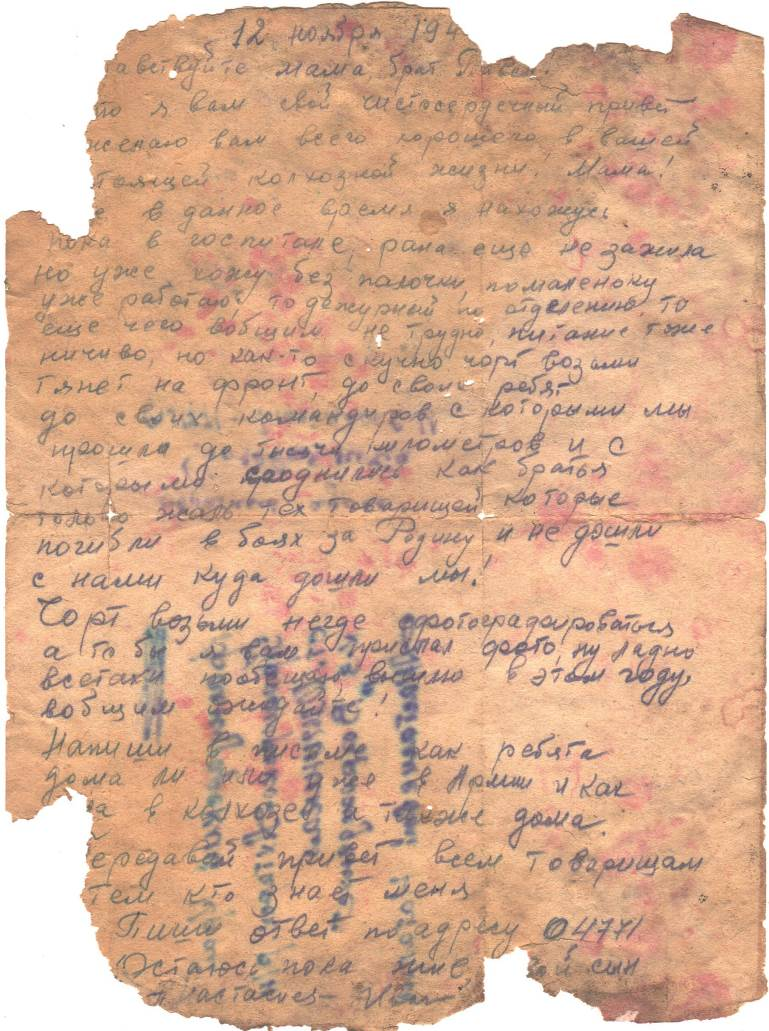 12 ноября 194
авствуйте мама, брат Павел!
я вам свой чистосердечный привет
желаю вам всего хорошего в вашей
тоящей колхозной жизни! Мама!
в данное время я нахожусь
пока в госпитале, рана еще не зажила
но уже хожу без палочки, помаленьку
уже работаю, то дежурный по отделению, то
еще чего вобщим не трудно, питание тоже
ничиво, но как-то скучно чорт возьми
тянет на фронт, до своих ребят
до своих командиров с которыми мы
прошли до тысячи километров и с
которыми сроднились как братья
только жаль тех товарищей которые
погибли в боях за Родину и не дошли
с нами куда дошли мы!
Чорт возьми негде сфотографироваться
а то бы я вам прислал фото, ну ладно
всетаки пообещаю вышлю в этом году,
вобщим ожидайте!
Напиши в письме как ребята
дома ли или уже в Армии и как
в колхозе и также дома.
ередавай привет всем товарищам
тем кто знает меня
Пиши ответ по адресу 04771
Остаюсь пока жив ой сын